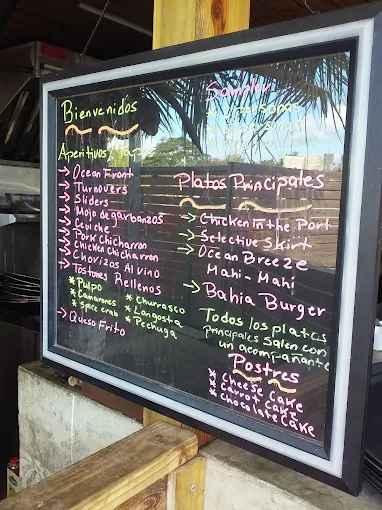 Bienvenidos
Aperitivos/Tapas
→ Ocean Front
→ Turnovers
→ Sliders
→ Mojo de garbanzos
→ Ceviche
→ Pork Chicharron
→ Chicken Chicharron
→ Chorizos Al vino
→ Tostones Rellenos
* Pulpo
* Camarones
* Spice crab
* Churrasco
* Langosta
* Pechuga
→ Queso Frito
Sampler
personas
personas
Platos Principales
→ Chicken in the Port
→ Selective Skirt
→ Ocean Breeze
Mahi-Mahi
→ Bahia Burger
Todos los platos
principales salen con
un acompañante
Postres
* Cheese Cake
* Carrot Cake
* Chocolate Cake